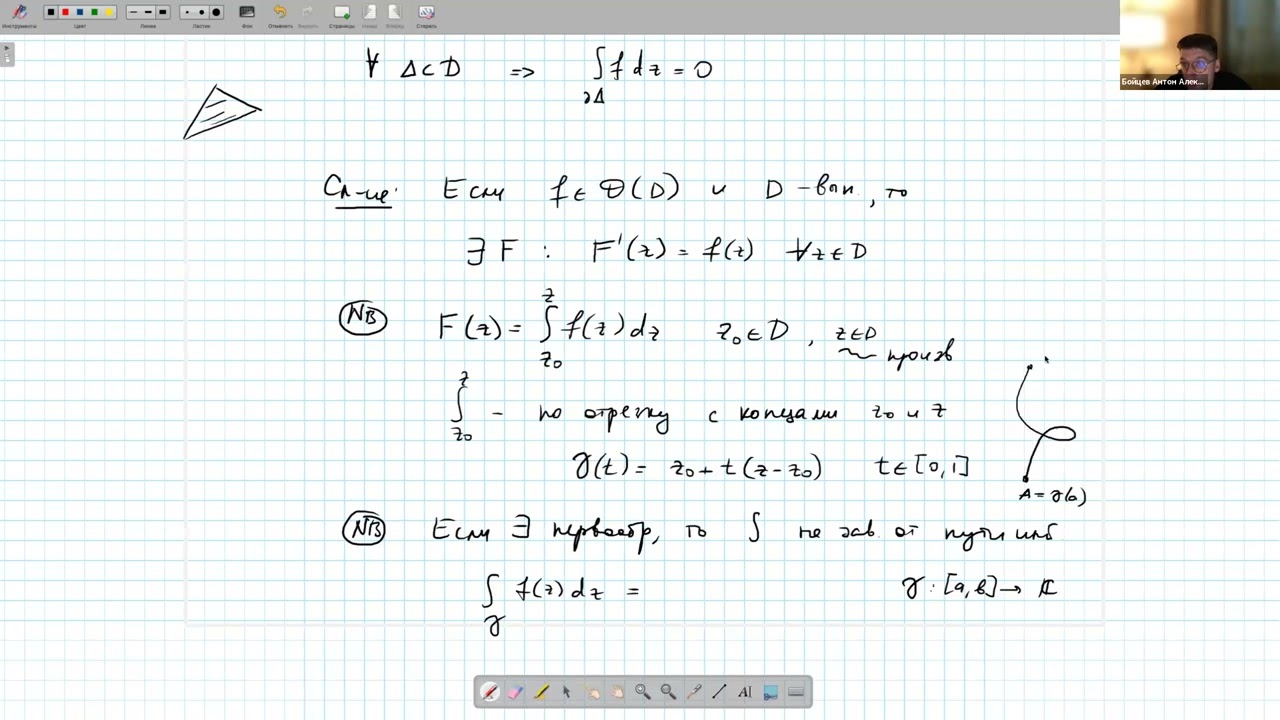 Инструменты Цвет Линии Ластик Фон Отменить Вернуть Страницы Назад Вперед Стереть
Бойцев Антон Алек...
∀ Δ⊂D => ∫ f dz = 0
∂Δ
Сл-ие: Если f ∈ O(D) и D - вып., то
∃ F : F'(z) = f(z) ∀z∈D
NB F(z) = ∫_{z_0}^{z} f(z) dz z_0∈D, z∈D
произв
∫_{z_0}^{z} - по отрезку с концами z_0 и z
γ(t) = z_0 + t(z-z_0) t∈[0,1]
A = γ(a)
NB Если ∃ первообр, то ∫ не зав. от пути инт
∫_γ f(z) dz = γ : [a,b] → ℂ
AI